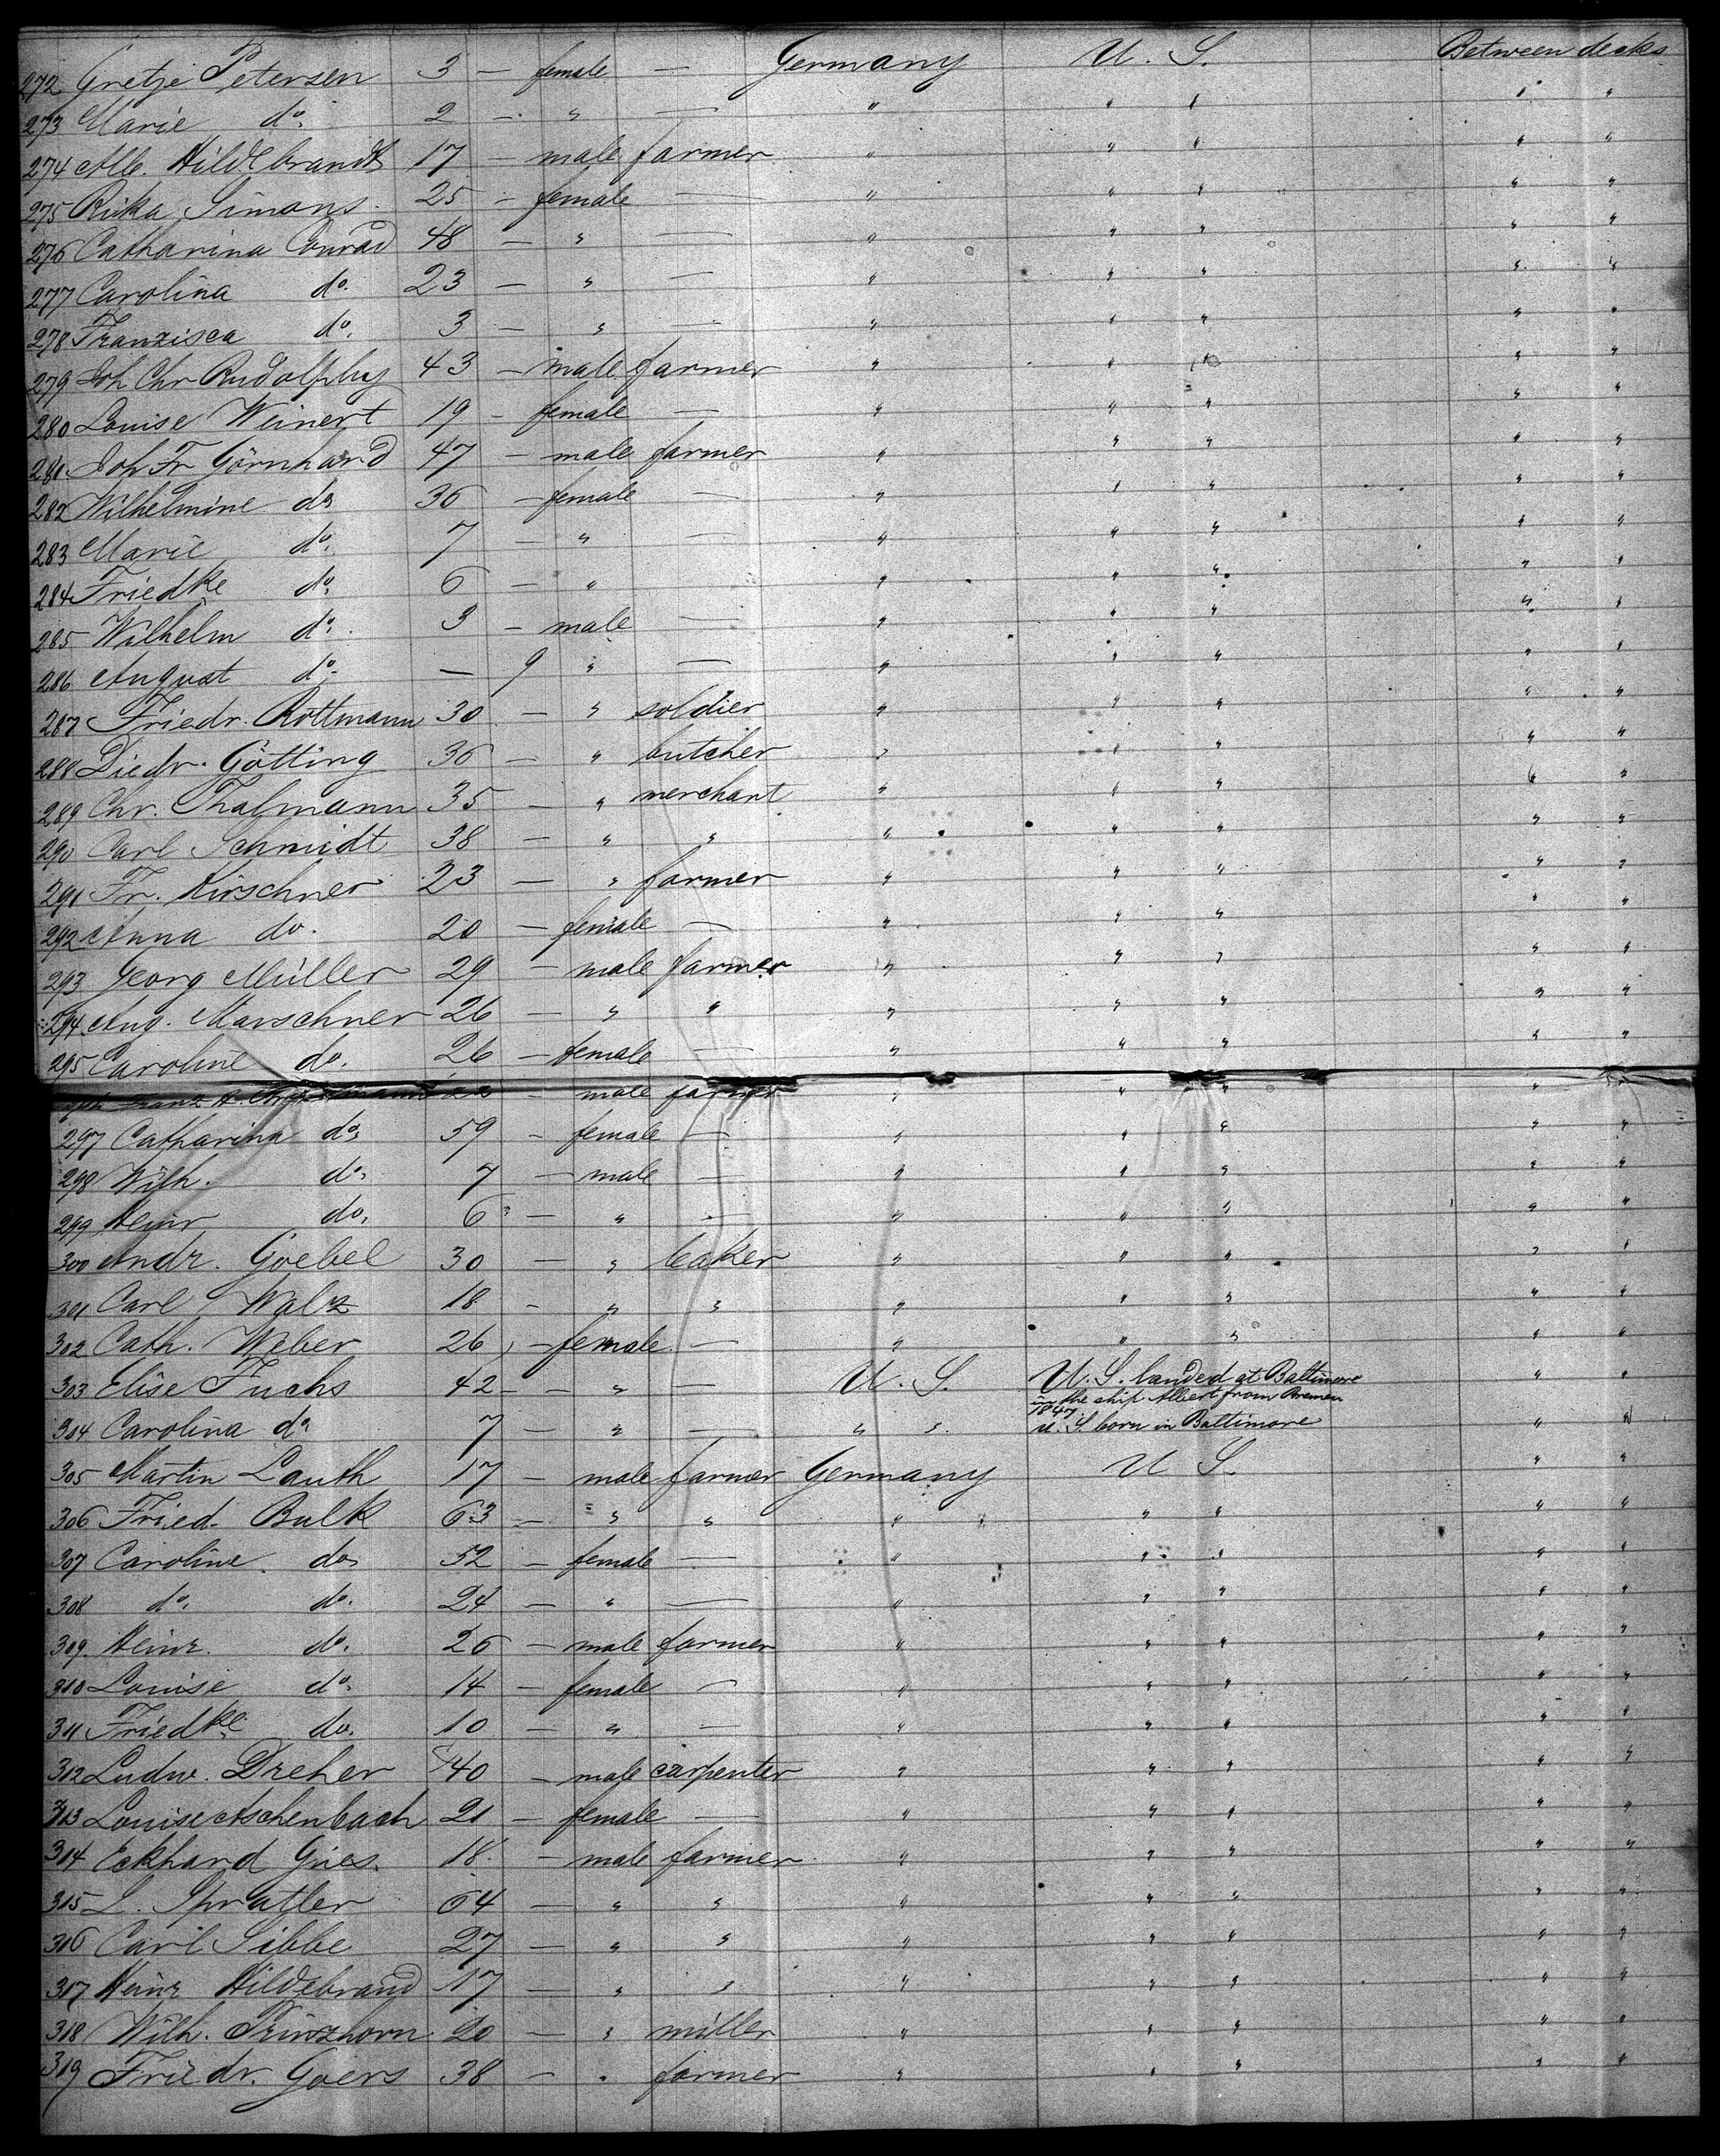 272 Gretje Petersen 3 — female — Germany U. S. Between decks
273 Marie do. 2 — " — " " " " "
274 Alb. Hildebrandt 17 — male farmer " " " " "
275 Rieka Simons 25 — female — " " " " "
276 Catharina Conrad 48 — " — " " " " "
277 Carolina do. 23 — " — " " " " "
278 Franzisca do. 3 — " — " " " " "
279 Joh Chr Rudolphy 43 — male farmer " " " " "
280 Louise Weinert 19 — female — " " " " "
281 Joh Fr Görnhard 47 — male farmer " " " " "
282 Wilhelmine do 36 — female — " " " " "
283 Marie do. 7 — " — " " " " "
284 Friedke do. 6 — " — " " " " "
285 Wilhelm do. 3 — male — " " " " "
286 August do. — 9 " — " " " " "
287 Friedr. Rottmann 30 — " soldier " " " " "
288 Diedr. Götting 36 — " butcher " " " " "
289 Chr. Thalmann 35 — " merchant " " " " "
290 Carl Schmidt 38 — " " " " " " "
291 Fr. Kirschner 23 — " farmer " " " " "
292 Anna do. 20 — female — " " " " "
293 Georg Müller 29 — male farmer " " " " "
294 Aug. Marschner 26 — " " " " " " "
295 Caroline do. 26 — female — " " " " "
Franz — male farmer " " " " "
297 Catharina do 59 — female — " " " " "
298 Wilh. do. 7 — male — " " " " "
299 Heinr do. 6 — " — " " " " "
300 Andr. Goebel 30 — " baker " " " " "
301 Carl Walz 18 — " " " " " " "
302 Cath. Weber 26 — female — " " " " "
303 Elise Fuchs 42 — " — U. S. U. S. landed at Baltimore " "
in the ship Albert from Bremen
1847
304 Carolina do 7 — " — " " U. S. born in Baltimore " "
305 Martin Lauth 17 — male farmer Germany U S. " "
306 Fried. Balk 63 — " " " " " " "
307 Caroline do 52 — female — " " " " "
308 do. do. 24 — " — " " " " "
309. Heinr. do. 26 — male farmer " " " " "
310 Louise do. 14 — female — " " " " "
311 Friedke do. 10 — " — " " " " "
312 Ludw. Dreher 40 — male carpenter " " " " "
313 Louise Aschenbach 21 — female — " " " " "
314 Eckhard Gries. 18 — male farmer " " " " "
315 L. 64 — " " " " " " "
316 Carl Sibbe 27 — " " " " " " "
317 Heinr Hildebrand 17 — " " " " " " "
318 Wilh. Prinzhorn 20 — " miller " " " " "
319 Friedr. Goers 38 — " farmer " " " " "